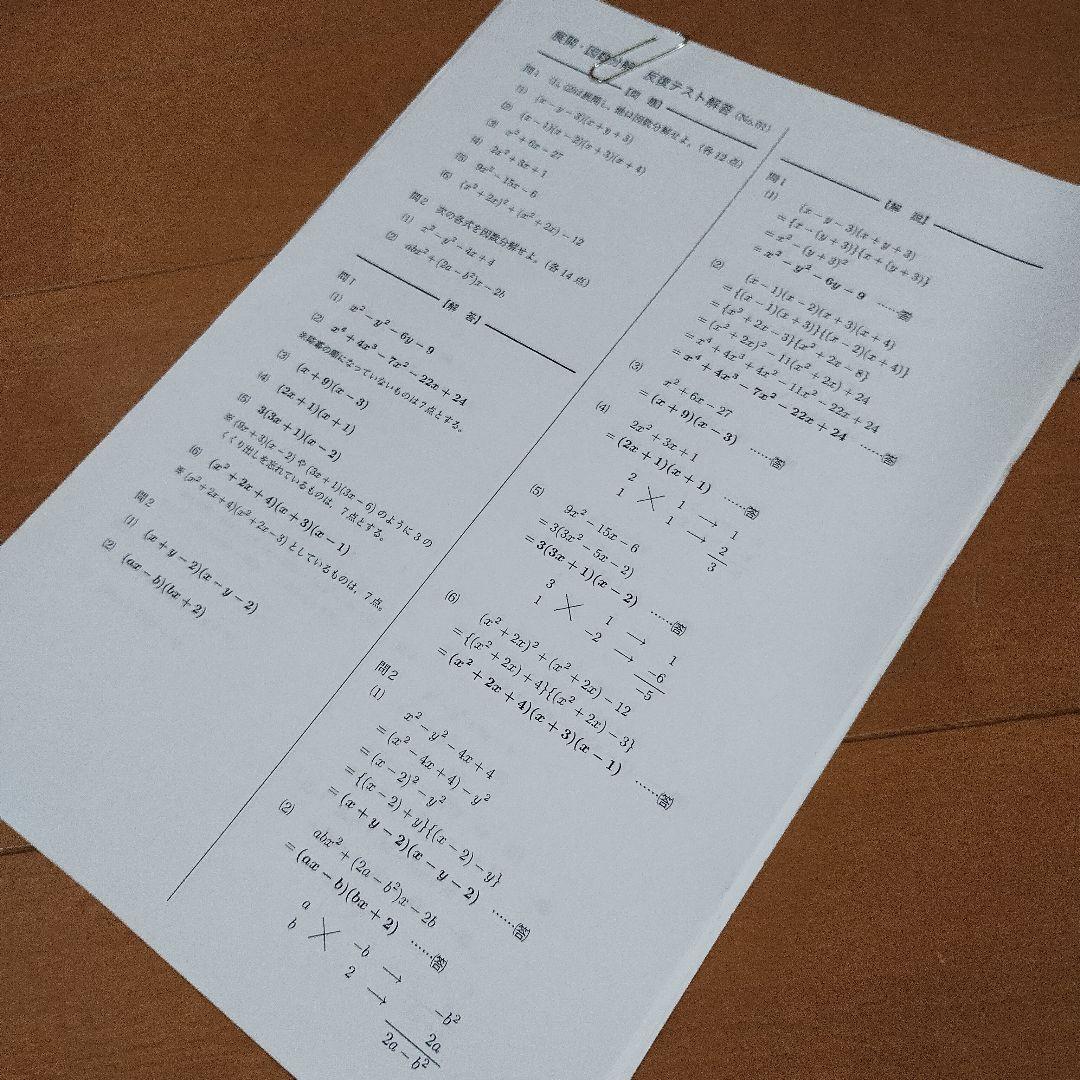 展開・因数分解 反復テスト解答 (No.01)
【問 題】
問1 (1), (2)は展開し,他は因数分解せよ。(各12点)
(1) (x−y−3)(x+y+3)
(2) (x−1)(x−2)(x+3)(x+4)
(3) x²+6x−27
(4) 2x²+3x+1
(5) 9x²−15x−6
(6) (x²+2x)²+(x²+2x)−12
問2 次の各式を因数分解せよ。(各14点)
(1) x²−y²−4x+4
(2) abx²+(2a−b²)x−2b
【解 答】
問1
(1) x²−y²−6y−9
(2) x⁴+4x³−7x²−22x+24
※降冪の順になっていないものは7点とする。
(3) (x+9)(x−3)
(4) (2x+1)(x+1)
(5) 3(3x+1)(x−2)
※(9x+3)(x−2)や(3x+1)(3x−6)のように3の
くくり出しを忘れているものは、7点とする。
(6) (x²+2x+4)(x+3)(x−1)
※(x²+2x+4)(x²+2x−3)としているものは、7点。
問2
(1) (x+y−2)(x−y−2)
(2) (ax−b)(bx+2)
【解 説】
問1
(1) (x−y−3)(x+y+3)
={x−(y+3)}{x+(y+3)}
=x²−(y+3)²
=x²−y²−6y−9 ……答
(2) (x−1)(x−2)(x+3)(x+4)
={(x−1)(x+3)}{(x−2)(x+4)}
={x²+2x−3}{x²+2x−8}
=(x²+2x)²−11(x²+2x)+24
=x⁴+4x³+4x²−11x²−22x+24
=x⁴+4x³−7x²−22x+24 ……答
(3) x²+6x−27
=(x+9)(x−3) ……答
(4) 2x²+3x+1
=(2x+1)(x+1) ……答
2 1 → 1
1 1 → 2
3
(5) 9x²−15x−6
=3(3x²−5x−2)
=3(3x+1)(x−2) ……答
3 1 → 1
1 −2 → −6
−5
(6) (x²+2x)²+(x²+2x)−12
={(x²+2x)+4}{(x²+2x)−3}
=(x²+2x+4)(x+3)(x−1) ……答
問2
(1) x²−y²−4x+4
=(x²−4x+4)−y²
=(x−2)²−y²
={(x−2)+y}{(x−2)−y}
=(x+y−2)(x−y−2) ……答
(2) abx²+(2a−b²)x−2b
=(ax−b)(bx+2) ……答
a −b → −b²
b 2 → 2a
2a−b²